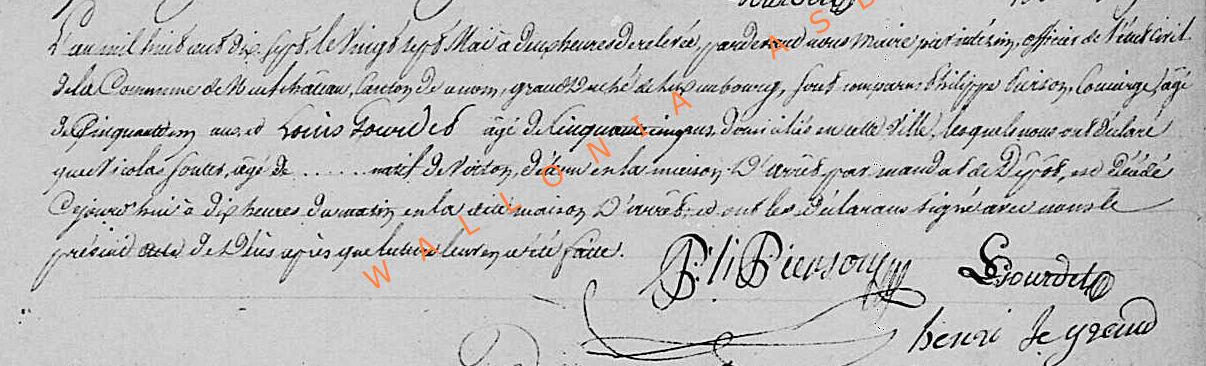 L'an mil huit cent dix sept, le vingt sept Mai à deux heures de relevée, pardevant nous Maire par intérim, officier de l'état civil
de la Commune de Neufchâteau, Canton de ce nom, grand Duché de Luxembourg, sont comparus Philippe Pierson, Concierge, âgé
de Cinquante un ans, et Louis Gourdet âgé de Cinquante cinq ans, domiciliés en cette Ville, lesquels nous ont déclaré
que Nicolas âgé de ....... natif de Virton, détenu en la maison D'arrêt, par mandat de Dépôt, est décédé
Cejourd'hui à dix heures du matin en la dite maison D'arrêt, et ont les déclarans signé avec nous le
présent acte de Décès après que lecture leur en a été faite.
Ph Pierson LGourdet
henri Le grand
WALLONIA ASB